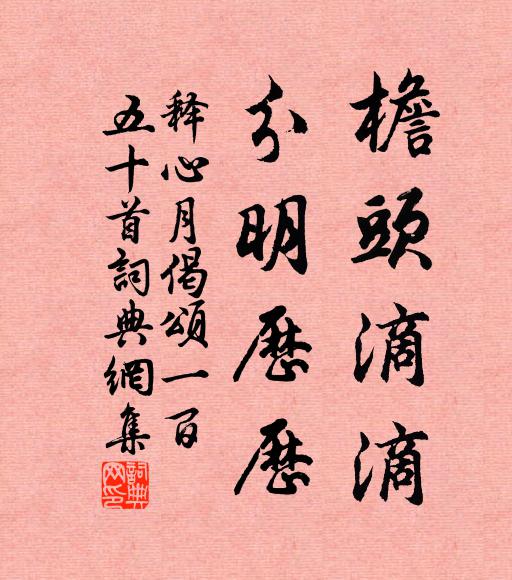 檐頭滴滴
分明歷歷
釋心月偈頌一百
五十首詞典網集
詞典网印